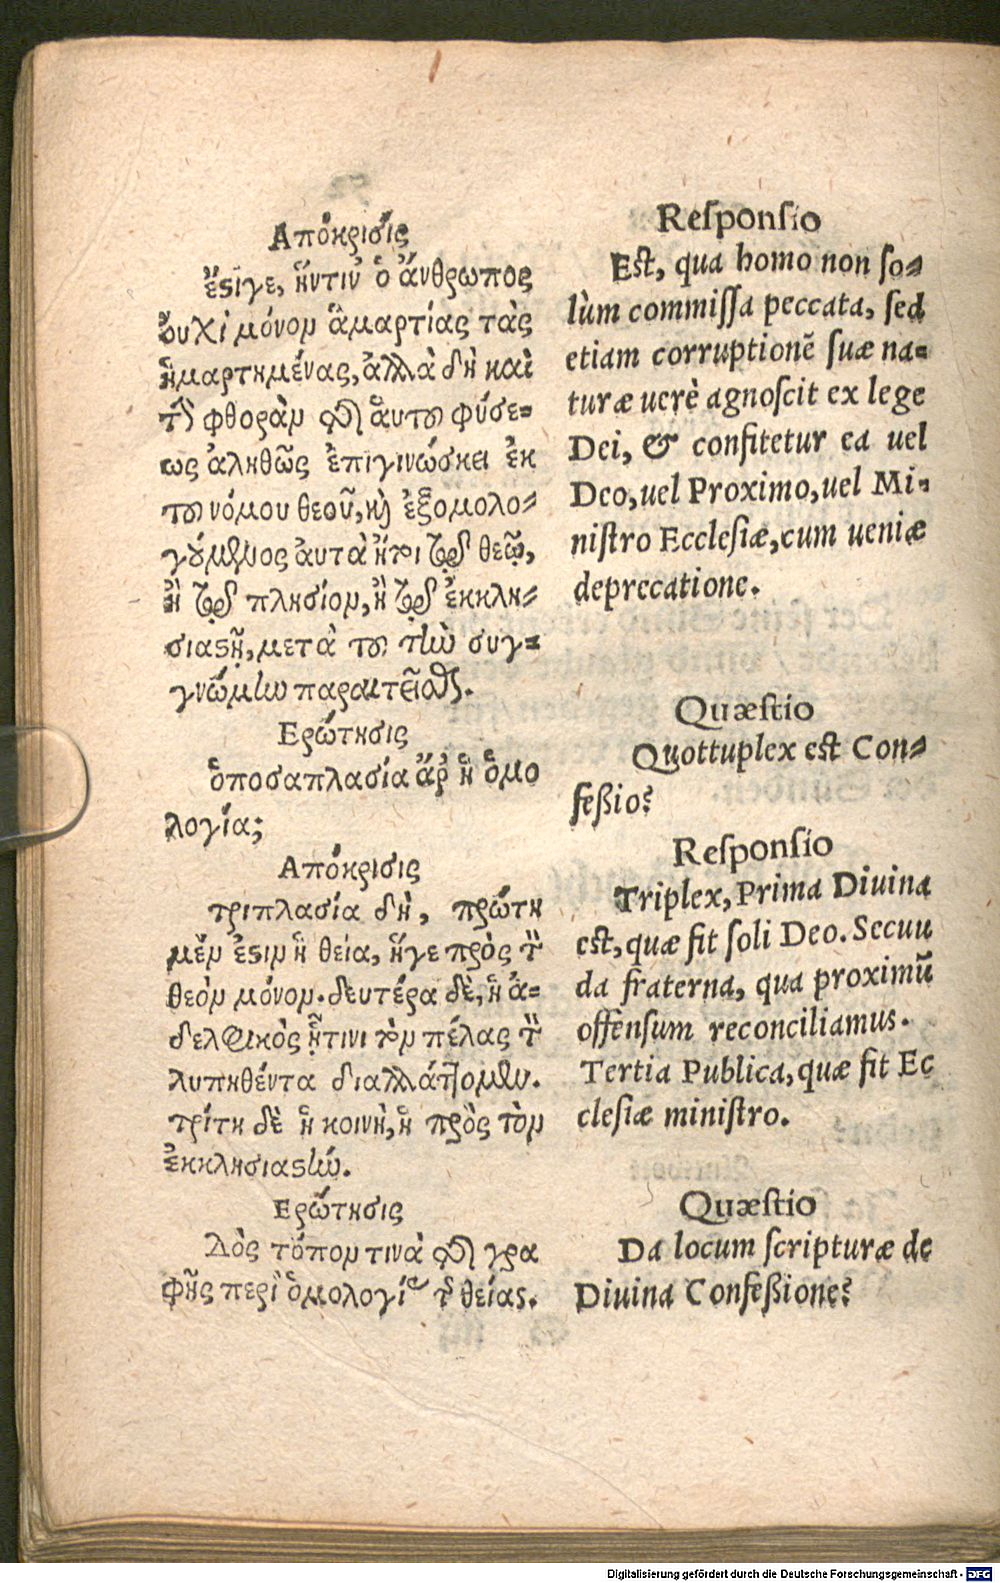 Ἀπόκρισίς
ἔστιγε, ἥντιν' ὁ ἄνθρωπος
οὐχὶ μόνον ἁμαρτίας τὰς
ἡμαρτημένας, ἀλλὰ δὴ καὶ
τὴν φθορὰν τῆς ἁυτοῦ φύσε-
ως ἀληθῶς ἐπιγινώσκει ἐκ
τοῦ νόμου θεοῦ, καὶ ἐξομολο-
γούμενος ἀυτὰ ἤτοι τῷ θεῷ,
ἢ τῷ πλησίον, ἢ τῷ ἐκκλη-
σιαστῇ, μετὰ τοῦ τὴν συγ-
γνώμην παραιτεῖσθαι.
Ερώτησις
ὁποσαπλασία ἄρ' ἡ ὁμο
λογία;
Ἀπόκρισις
τριπλασία δὴ, πρώτη
μἔν ἐστιν ἡ θεία, ἥγε πρὸς τὸν
θεὸν μόνον. δευτέρα δὲ, ἡ ἀ-
δελφικὸς ᾗτινι τὸν πέλας τὸν
λυπηθέντα διαλλάττομεν.
τρίτη δὲ ἡ κοινὴ, ἡ πρὸς τὸν
ἐκκλησιαστήν.
Ερώτησις
Δὸς τόπον τινὰ τῆς γρα
φῆς περὶ ὁμολογίας τῆς θείας.
Responsio
Est, qua homo non so-
lùm commissa peccata, sed
etiam corruptionẽ suæ na-
turæ uerè agnoscit ex lege
Dei, & confitetur ea uel
Deo, uel Proximo, uel Mi-
nistro Ecclesiæ, cum ueniæ
deprecatione.
Quæstio
Quottuplex est Con-
feßio?
Responsio
Triplex, Prima Diuina
est, quæ fit soli Deo. Secuu
da fraterna, qua proximũ
offensum reconciliamus.
Tertia Publica, quæ fit Ec
clesiæ ministro.
Quæstio
Da locum scripturæ de
Diuina Confeßione?
Digitalisierung gefördert durch die Deutsche Forschungsgemeinschaft - DFG